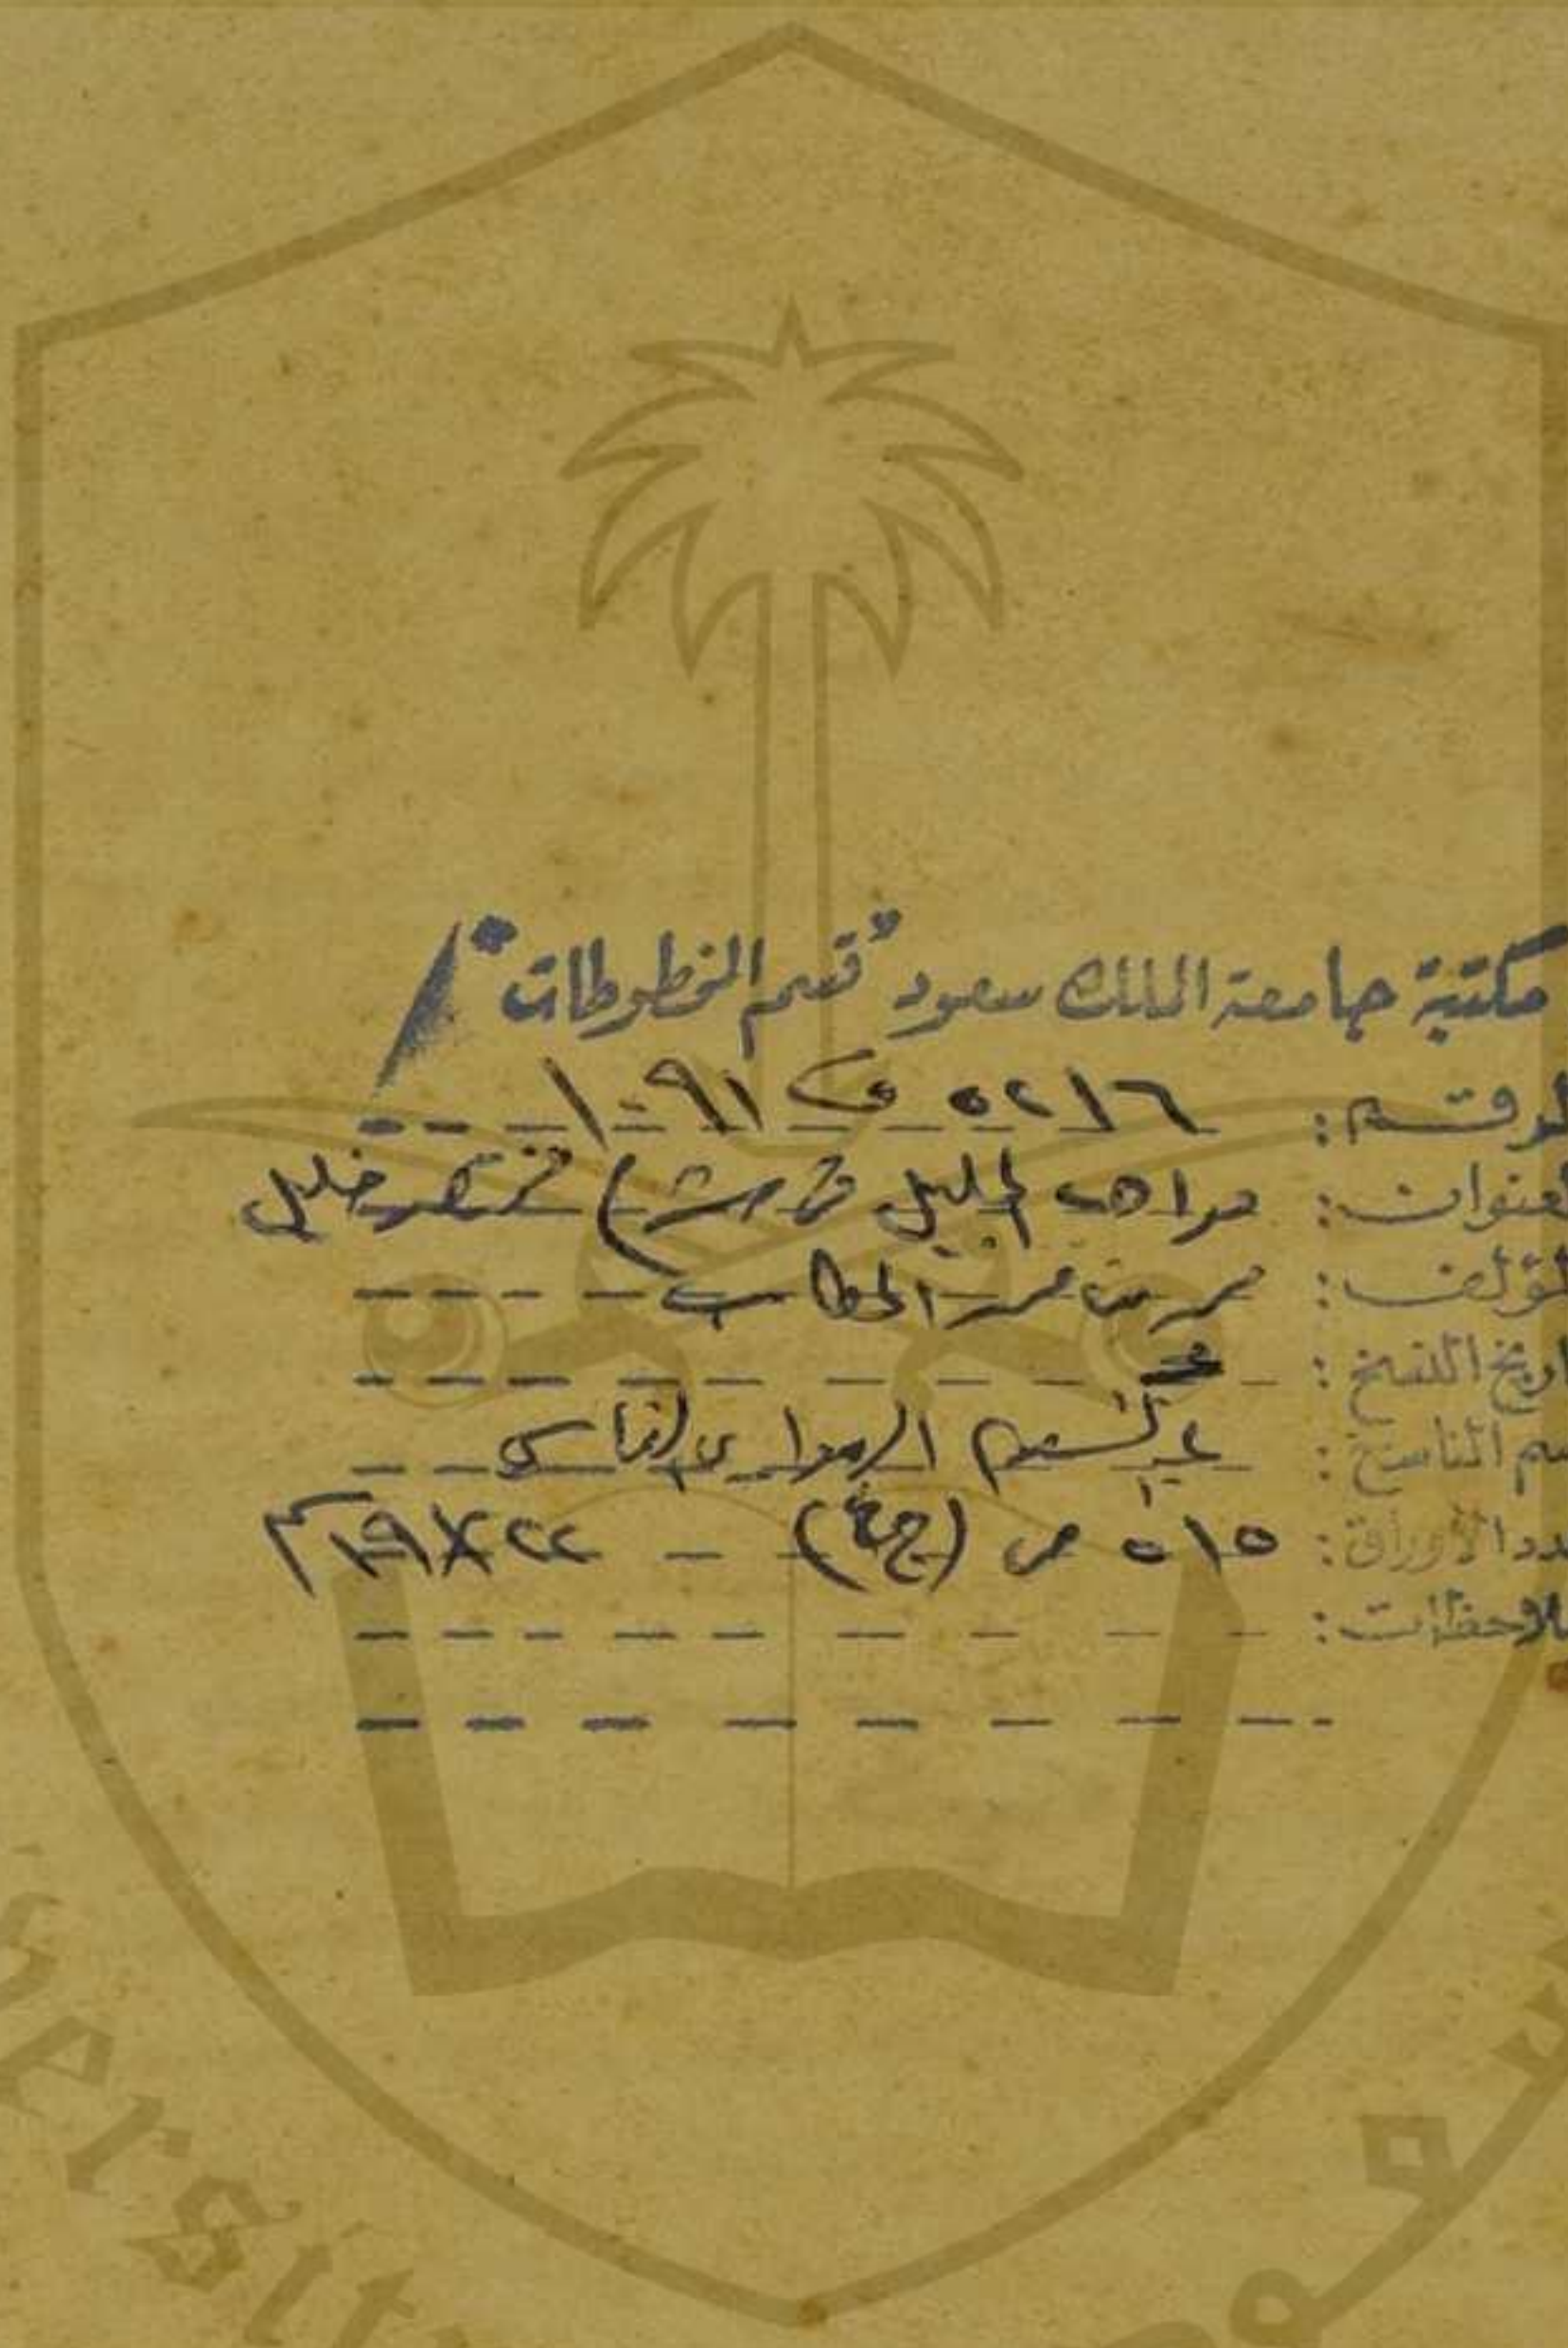 مكتبة جامعة الملك سعود "قسم المخطوطات"
الرقم: ٥٢١٦ ف ١٠٩١
العنوان: مواهب الجليل في شرح مختصر خليل
المؤلف: محمد بن محمد الحطاب
تاريخ النسخ:
اسم الناسخ: عبد السلام
عدد الأوراق: ٥١٥ ص (ج٤) - ٢٢×١٩ سم
ملاحظات:
ersit